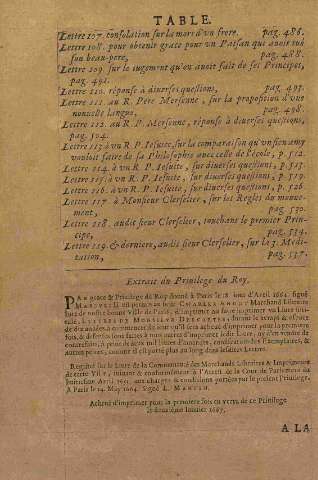 TABLE.
Lettre 107. consolation sur la mort d'vn frere. pag. 486.
Lettre 108. pour obtenir grace pour vn Païsan que auoit tué
son beau-pere, pag. 488.
Lettre 109. sur le iugement qu'on auoit fait de ses Principes,
pag. 491.
Lettre 110. réponse à diuerses questions, pag. 495.
Lettre 111. au R. Pere Mersenne, sur la proposition d'vne
nouuelle langue, pag. 498.
Lettre 112. au R. P. Mersenne, réponse à diuerses questions,
pag. 504.
Lettre 113. à vn R. P. Iesuite, sur la comparaison qu'vn sien amy
vouloit faire de sa Philosophie auec celle de l'école, p. 512.
Lettre 114. à vn R. P. Iesuite, sur diuerses questions, p. 515.
Lettre 115. à vn R. P. Iesuite, sur diuerses questions, p. 519.
Lettre 116. à vn R. P. Iesuite, sur diuerses questions, p. 526.
Lettre 117. à Monsieur Clerselier, sur les Regles du mouue-
ment, pag. 530.
Lettre 118. audit sieur Clerselier, touchant le premier Prin-
cipe, pag. 534.
Lettre 119. & derniere, audit sieur Clerselier, sur la 3. Medi-
tation, pag. 537.
Extrait du Priuilege du Roy.
PAr grace & Priuilege du Roy donné à Paris le iour d'Avril 1662. signé
il est permis au sieur CHARLES ANGOT Marchand Libraire
Iuré de nostre bonne Ville de Paris, d'imprimer ou faire imprimer vn Liure intitu-
lé, LES LETTRES DE MONSIEVR DESCARTES, durant le temps & espace
de dix années à commencer du iour qu'il sera acheué d'imprimer pour la premiere
fois, & defenses sont faites à tous autres d'imprimer ledit Liure, ny d'en vendre de
contrefaits, à peine de deux mil liures d'amende, confiscation des Exemplaires, &
autres peines, comme il est porté plus au long dans lesdites Lettres.
Registré sur le Liure de la Communauté des Marchands Libraires & Imprimeurs
de cette Ville, suiuant & conformément à l'Arrest de la Cour de Parlement du
huitiéme Avril aux charges & conditions portées par le present Priuilege.
A Paris le 14. May 1664. Signé E. MARTIN.
Acheué d'imprimer pour la premiere fois en vertu de ce Priuilege
le deuxiéme Ianuier 1667.
A LA